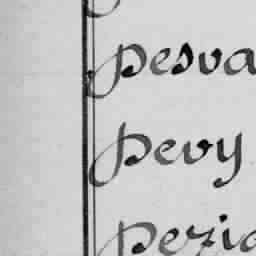 pesva
pevy
pezic